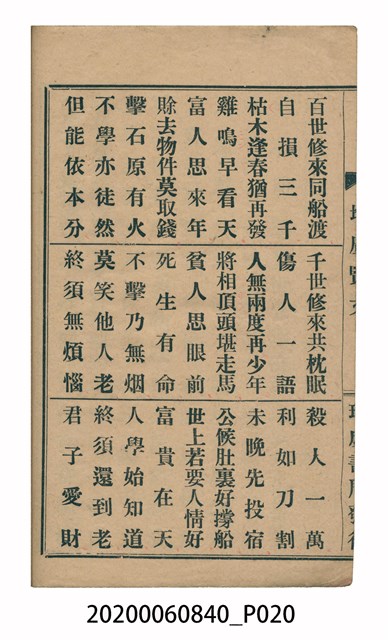 百世修來同船渡 千世修來共枕眠 殺人一萬
自損三千 傷人一語 利如刀割
枯木逢春猶再發 人無兩度再少年 未晚先投宿
雞鳴早看天 將相頂頭堪走馬 公候肚裏好撐船
富人思來年 貧人思眼前 世上若要人情好
賒去物件莫取錢 死生有命 富貴在天
擊石原有火 不擊乃無烟 人學始知道
不學亦徒然 莫笑他人老 終須還到老
但能依本分 終須無煩惱 君子愛財
20200060840_P020